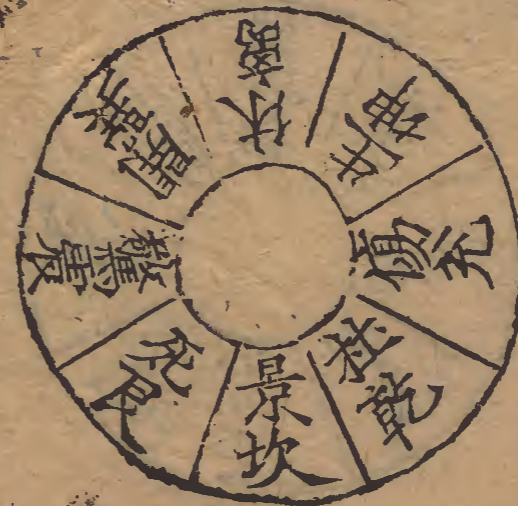 休離
生坤
傷兌
杜乾
景坎
死艮
驚震
開巽